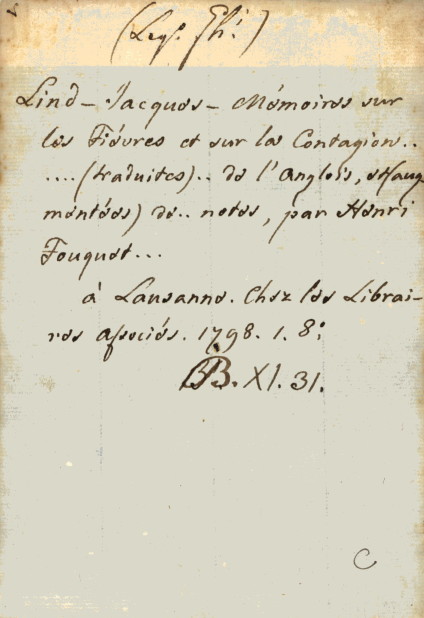 (Leg. Gh.)
Lind - Jacques - Mémoires sur
les Fiévres et sur la Contagion..
....(traduites).. de l'Anglois, et(aug
mentées) de.. notes, par Henri
Fouquet...
à Lausanne. Chez les Librai-
res associés. 1798. 1. 8:
BB. XI. 31.
C